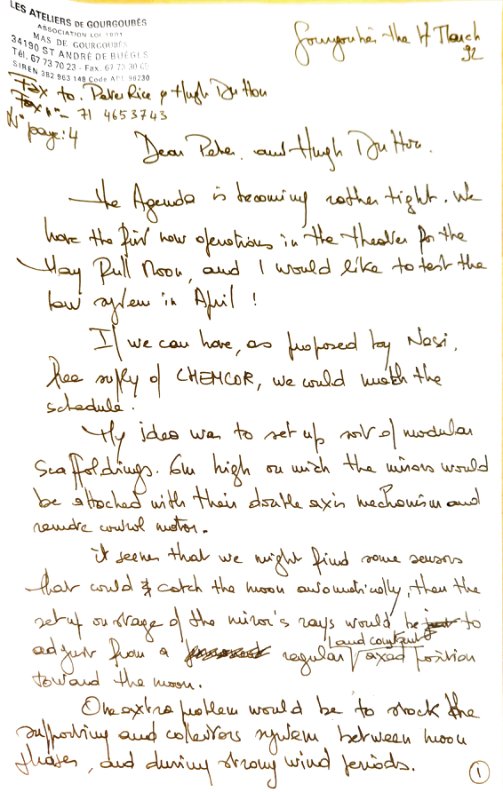 LES ATELIERS DE GOURGOUBÈS
ASSOCIATION LOI 1901
MAS DE GOURGOUBÈS
34190 ST ANDRÉ DE BUÈGES
Tél. 67 73 70 23 - Fax. 67 73 30
SIREN 382 963 148 Code APE 96230
Gourgoubès the 14 March
92
Fax to. Peter Rice & Hugh Dutton
Fax n° - 71 4653743
N° page: 4
Dear Peter. and Hugh Dutton.
The Agenda is becoming rather tight. We
have the first now operations in the theater for the
May Full Moon, and I would like to test the
low system in April !
If we can have, as proposed by Nasi,
free suply of CHEMCOR, we could match the
schedule.
My idea was to set up sort of modular
scaffoldings. 6m high on wich the mirors would
be attached with their double axis mechanism and
remote control motor.
it seems that we might find some sensors
that could catch the moon automatically, then the
set up on stage of the miror's rays would be to
adjust from a regular and constant axed position
toward the moon.
One extra problem would be to stock the
supporting and collectors system between moon
phases, and during strong wind periods.
1